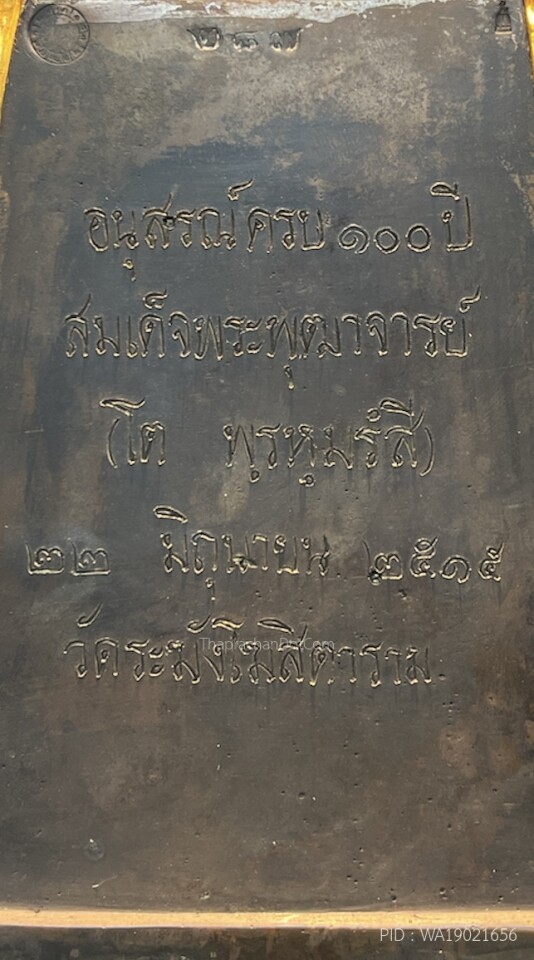 ๒๘๗
อนุสรณ์ครบ ๑๐๐ ปี
สมเด็จพระพุฒาจารย์
(โต พฺรหฺมรํสี)
๒๒ มิถุนายน ๒๕๑๕
วัดระฆังโฆสิตาราม
ThaprachanDbt.Com
PID : WA19021656